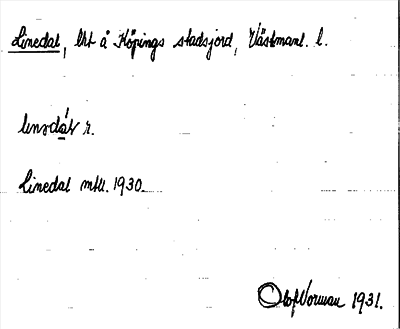 Linedal, lht å Köpings stadsjord, Västmanl. l.
linedal mtu. 1930.
Olof Norman 1931.